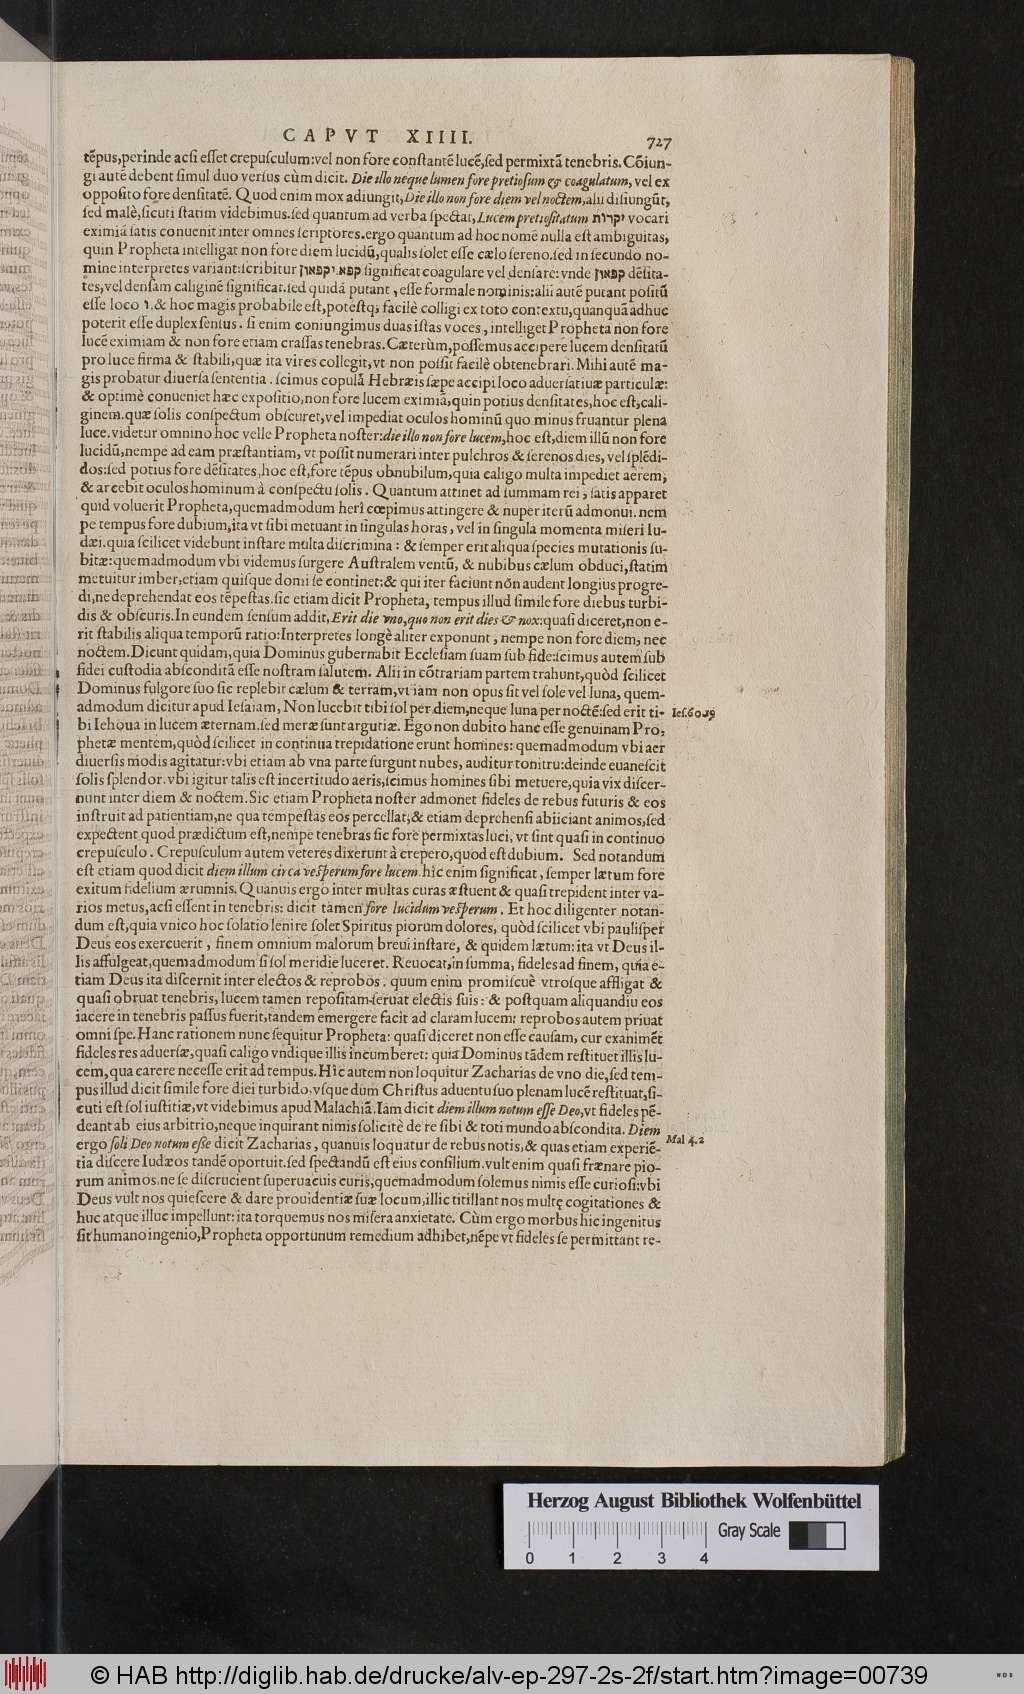 CAPVT XIIII. 727
tẽpus, perinde acſi eſſet crepuſculum: vel non fore conſtantẽ lucẽ, ſed permixtã tenebris. Cõiun-
gi autẽ debent ſimul duo verſus cùm dicit. Die illo neque lumen fore pretioſum & coagulatum, vel ex
oppoſito fore denſitatẽ. Quod enim mox adiungit, Die illo non fore diem vel noctem, alii diſiungũt,
ſed malè, ſicuti ſtatim videbimus. ſed quantum ad verba ſpectat, Lucem pretioſitatum יקרות vocari
eximiã ſatis conuenit inter omnes ſcriptores. ergo quantum ad hoc nomẽ nulla eſt ambiguitas,
quin Propheta intelligat non fore diem lucidũ, qualis ſolet eſſe cælo ſereno. ſed in ſecundo no-
mine interpretes variant: ſcribitur קפא. יקפאון ſignificat coagulare vel denſare: vnde קפאון dẽſita-
tes, vel denſam caliginẽ ſignificat. ſed quidã putant, eſſe formale nominis: alii autẽ putant poſitũ
eſſe loco ו. & hoc magis probabile eſt, poteſtq; facilè colligi ex toto contextu, quanquã adhuc
poterit eſſe duplex ſenſus. ſi enim coniungimus duas iſtas voces, intelliget Propheta non fore
lucẽ eximiam & non fore etiam craſſas tenebras. Cæterùm, poſſemus accipere lucem denſitatũ
pro luce firma & ſtabili, quæ ita vires collegit, vt non poſſit facilè obtenebrari. Mihi autẽ ma-
gis probatur diuerſa ſententia. ſcimus copulã Hebræis ſæpe accipi loco aduerſatiuæ particulæ:
& optimè conueniet hæc expoſitio, non fore lucem eximiã, quin potius denſitates, hoc eſt, cali-
ginem. quæ ſolis conſpectum obſcuret, vel impediat oculos hominũ quo minus fruantur plena
luce. videtur omnino hoc velle Propheta noſter: die illo non fore lucem, hoc eſt, diem illũ non fore
lucidũ, nempe ad eam præſtantiam, vt poſſit numerari inter pulchros & ſerenos dies, vel ſplẽdi-
dos: ſed potius fore dẽſitates, hoc eſt, fore tẽpus obnubilum, quia caligo multa impediet aerem,
& arcebit oculos hominum à conſpectu ſolis. Quantum attinet ad ſummam rei, ſatis apparet
quid voluerit Propheta, quemadmodum heri cœpimus attingere & nuper iterũ admonui. nem
pe tempus fore dubium, ita vt ſibi metuant in ſingulas horas, vel in ſingula momenta miſeri Iu-
dæi. quia ſcilicet videbunt inſtare multa diſcrimina: & ſemper erit aliqua ſpecies mutationis ſu-
bitæ: quemadmodum vbi videmus ſurgere Auſtralem ventũ, & nubibus cælum obduci, ſtatim
metuitur imber, etiam quiſque domi ſe continet: & qui iter faciunt nõn audent longius progre-
di, ne deprehendat eos tẽpeſtas. ſic etiam dicit Propheta, tempus illud ſimile fore diebus turbi-
dis & obſcuris. In eundem ſenſum addit, Erit die vno, quo non erit dies & nox: quaſi diceret, non e-
rit ſtabilis aliqua temporũ ratio: Interpretes longè aliter exponunt, nempe non fore diem, nec
noctem. Dicunt quidam, quia Dominus gubernabit Eccleſiam ſuam ſub fide: ſcimus autem ſub
fidei cuſtodia abſconditã eſſe noſtram ſalutem. Alii in cõtrariam partem trahunt, quòd ſcilicet
Dominus fulgore ſuo ſic replebit cælum & terram, vt iam non opus ſit vel ſole vel luna, quem-
admodum dicitur apud Ieſaiam, Non lucebit tibi ſol per diem, neque luna per noctẽ: ſed erit ti- Ieſ. 60.19
bi Iehoua in lucem æternam. ſed meræ ſunt argutiæ. Ego non dubito hanc eſſe genuinam Pro-
phetæ mentem, quòd ſcilicet in continua trepidatione erunt homines: quemadmodum vbi aer
diuerſis modis agitatur: vbi etiam ab vna parte ſurgunt nubes, auditur tonitru: deinde euaneſcit
ſolis ſplendor. vbi igitur talis eſt incertitudo aeris, ſcimus homines ſibi metuere, quia vix diſcer-
nunt inter diem & noctem. Sic etiam Propheta noſter admonet fideles de rebus futuris & eos
inſtruit ad patientiam, ne qua tempeſtas eos percellat, & etiam deprehenſi abiiciant animos, ſed
expectent quod prædictum eſt, nempe tenebras ſic fore permixtas luci, vt ſint quaſi in continuo
crepuſculo. Crepuſculum autem veteres dixerunt à crepero, quod eſt dubium. Sed notandum
eſt etiam quod dicit diem illum circa veſperum fore lucem. hic enim ſignificat, ſemper lætum fore
exitum fidelium ærumnis. Quanuis ergo inter multas curas æſtuent & quaſi trepident inter va-
rios metus, acſi eſſent in tenebris: dicit tamen fore lucidum veſperum. Et hoc diligenter notan-
dum eſt, quia vnico hoc ſolatio lenire ſolet Spiritus piorum dolores, quòd ſcilicet vbi pauliſper
Deus eos exercuerit, finem omnium malorum breui inſtare, & quidem lætum: ita vt Deus il-
lis affulgeat, quemadmodum ſi ſol meridie luceret. Reuocat, in ſumma, fideles ad finem, quia e-
tiam Deus ita diſcernit inter electos & reprobos. quum enim promiſcuè vtroſque affligat &
quaſi obruat tenebris, lucem tamen repoſitam ſeruat electis ſuis: & poſtquam aliquandiu eos
iacere in tenebris paſſus fuerit, tandem emergere facit ad claram lucem: reprobos autem priuat
omni ſpe. Hanc rationem nunc ſequitur Propheta: quaſi diceret non eſſe cauſam, cur exanimẽt
fideles res aduerſæ, quaſi caligo vndique illis incumberet: quia Dominus tãdem reſtituet illis lu-
cem, qua carere neceſſe erit ad tempus. Hic autem non loquitur Zacharias de vno die, ſed tem-
pus illud dicit ſimile fore diei turbido, vſque dum Chriſtus aduentu ſuo plenam lucẽ reſtituat, ſi-
cuti eſt ſol iuſtitiæ, vt videbimus apud Malachiã. Iam dicit diem illum notum eſſe Deo, vt fideles pẽ-
deant ab eius arbitrio, neque inquirant nimis ſolicitè de re ſibi & toti mundo abſcondita. Diem
ergo ſoli Deo notum eſſe dicit Zacharias, quanuis loquatur de rebus notis, & quas etiam experiẽ- Mal 4.2
tia diſcere Iudæos tandẽ oportuit. ſed ſpectandũ eſt eius conſilium. vult enim quaſi frænare pio-
rum animos. ne ſe diſcrucient ſuperuacuis curis, quemadmodum ſolemus nimis eſſe curioſi: vbi
Deus vult nos quieſcere & dare prouidentiæ ſuæ locum, illic titillant nos multę cogitationes &
huc atque illuc impellunt: ita torquemus nos miſera anxietate. Cùm ergo morbus hic ingenitus
ſit humano ingenio, Propheta opportunum remedium adhibet, nẽpe vt fideles ſe permittant re-
Herzog August Bibliothek Wolfenbüttel
Gray Scale
0 1 2 3 4
© HAB http://diglib.hab.de/drucke/alv-ep-297-2s-2f/start.htm?image=00739
WDB